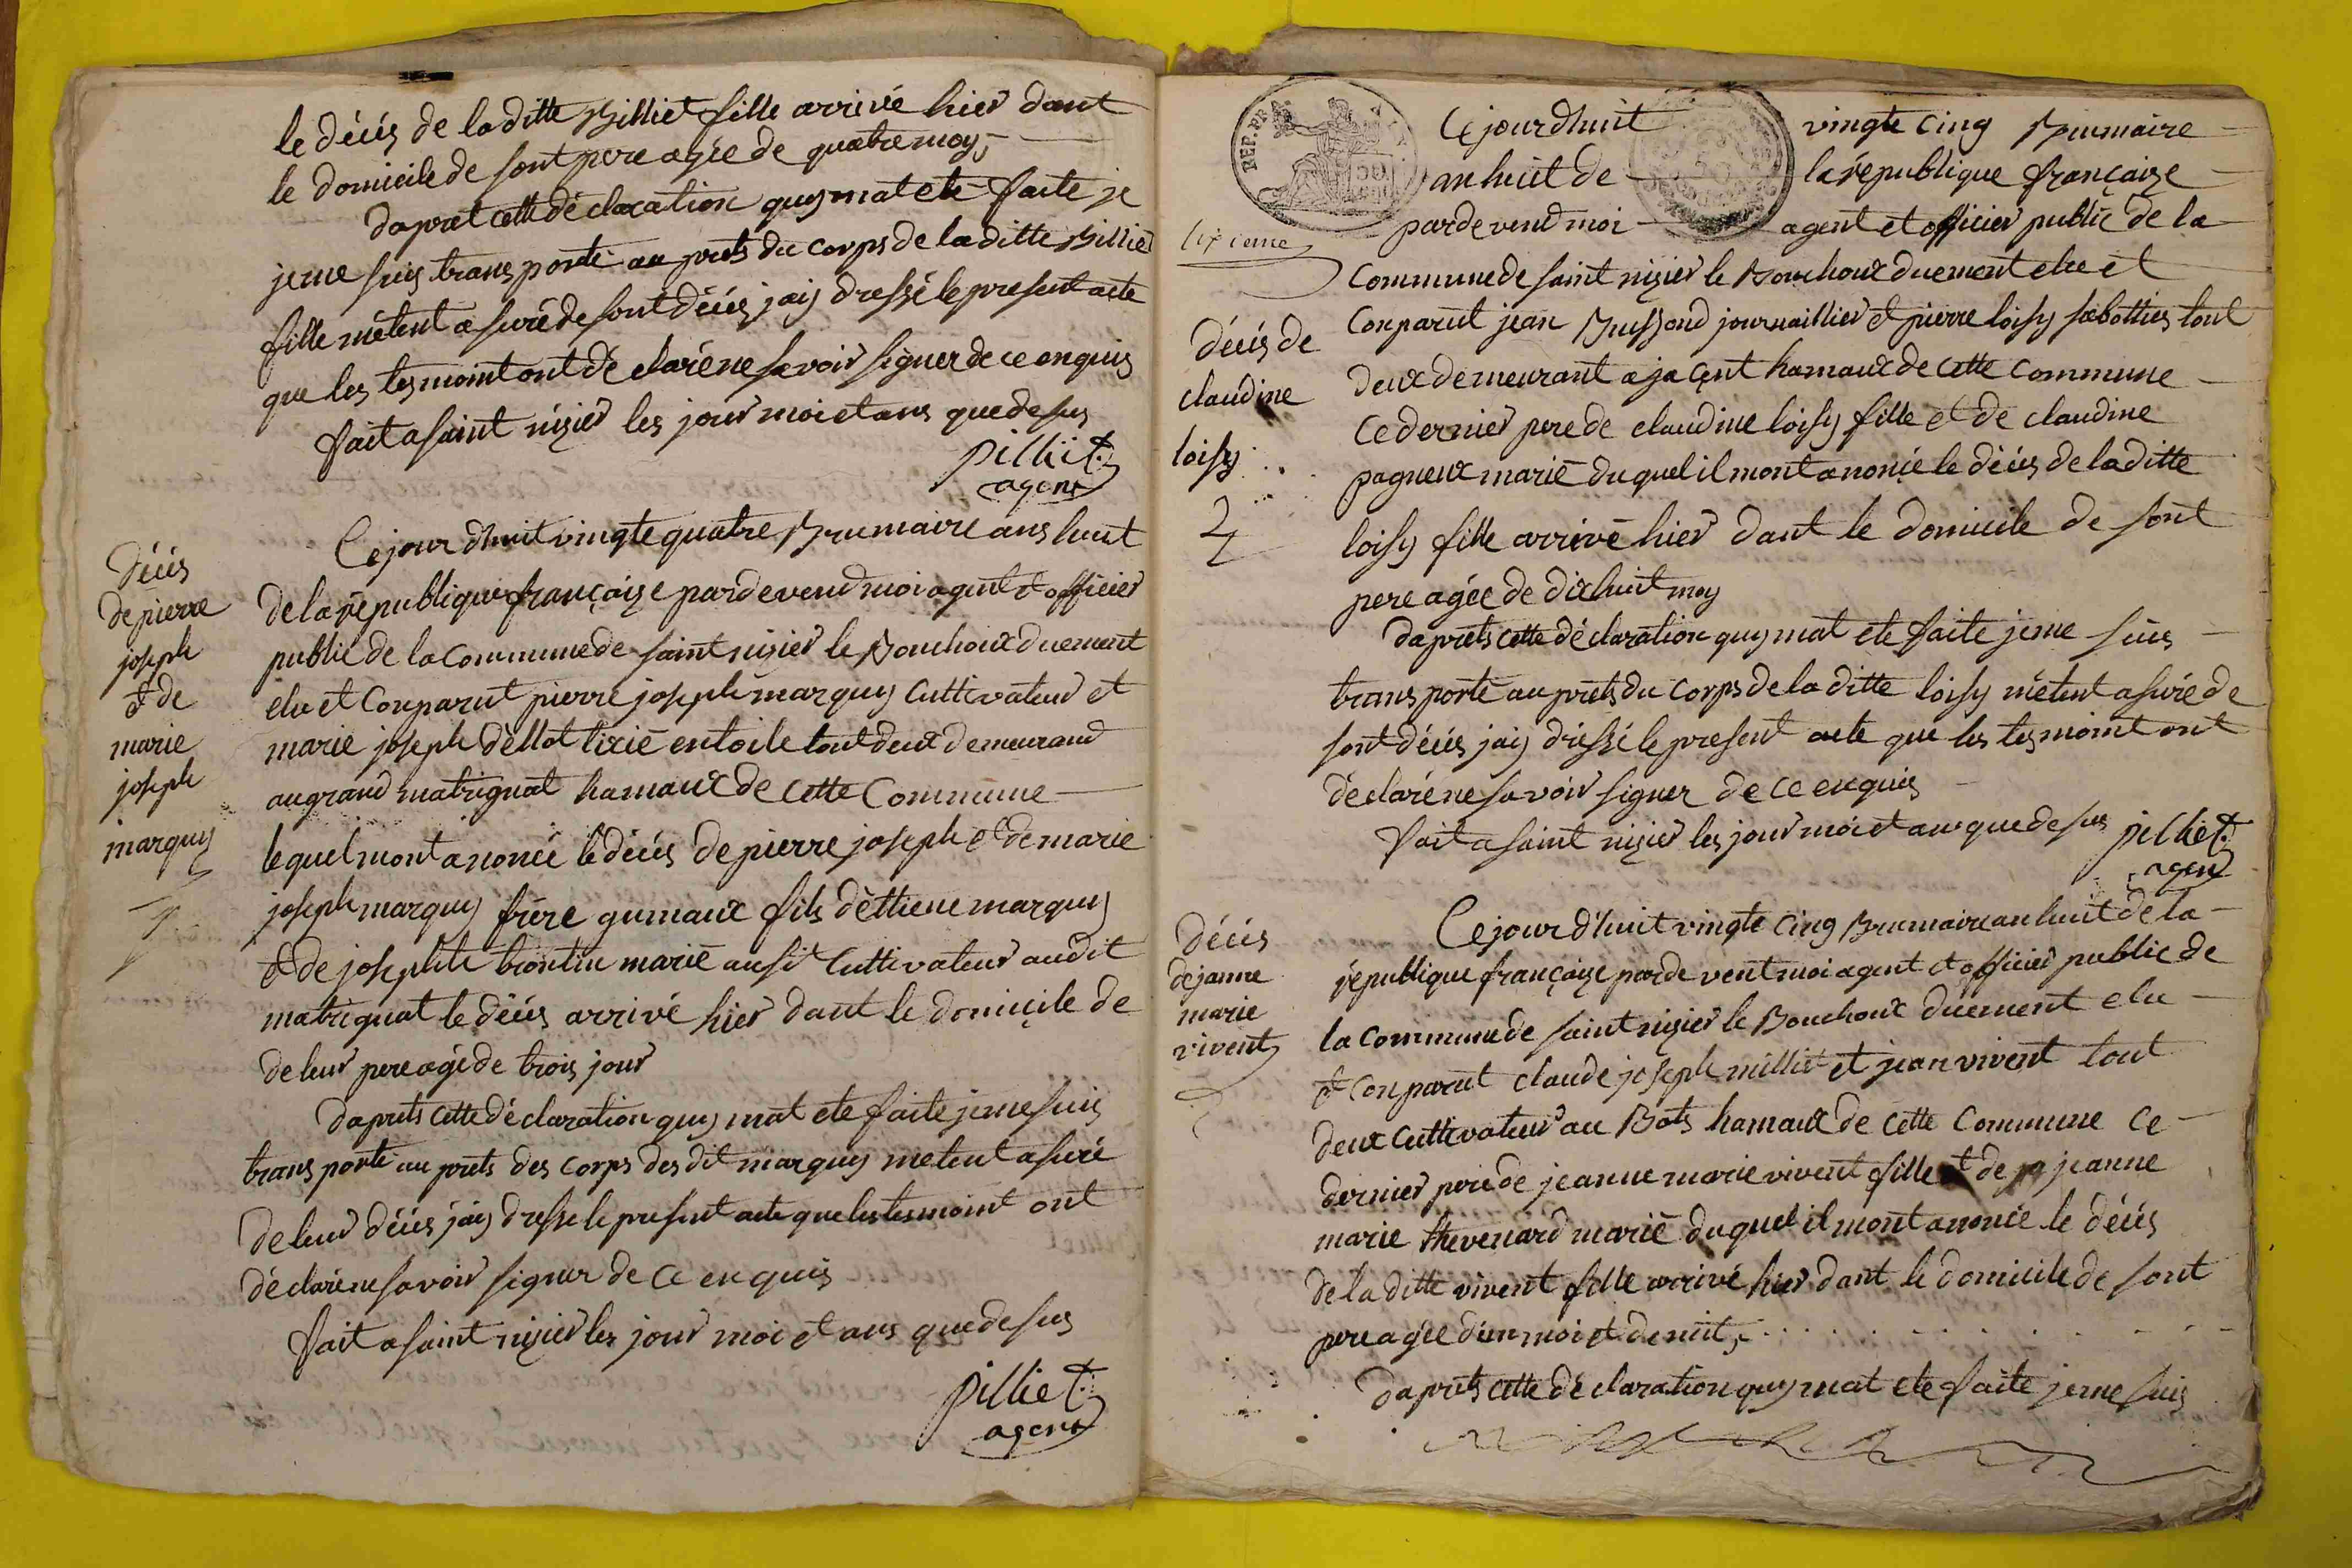 le décés de laditte Billiet fille arrivé hier dant
le domicile de sont pere agée de quatre moy
dapret cette déclaration quy mat ete faite je
jeme suis trans porté au prets du corps de laditte Billiet
fille métent asuré de sont décés jaiy dressé le present acte
que les tesmoint ont déclaré ne savoir signer de ce enquis
fait a saint nizier les jour moi et ans que desus
pilliet
agent
décés
de pierre
joseph
et de
marie
joseph
marquy
Cejour dhuit vingte quatre Brumaire ans huit
de la republique françaize pardevend moi agent et officier
public de la Commune de saint nizier le Bouchoux duement
elu et Conparut pierre joseph marquy Cultivateur et
marie joseph déllot tixié entoile tout deux demeurand
augrand matrignat hamaux de cette Commune
lequel mont anonée le décés de pierre joseph et de marie
joseph marquy frére gumaux fils déttiene marquy
et de josephte brontin marié ausit Cultivateur audit
matrignat le décés arrivé hier dant le domiçile de
de leur pere agé de trois jour
daprets cette déclaration quy mat ete faite jeme suis
trans porté au prets des corps des dit marquy metent asuré
de leur décés jaiy dressé le present acte que les tesmoint ont
déclaré ne savoir signer de ce enquis
fait a saint nizier les jour moi et ans que desus
pilliet
agent
REP. FRA.
Cejour dhuit vingte cinq Brumaire
an huit de la republique françaize
pardevend moi agent et officier public de la
Commune de saint nizier le Bouchoux duement elu et
décés de
claudine
loisy
Conparut jean Buissond journaillier et pierre loisy sabottier tout
deux demeurant a jaçent hamaux de cette Commune
ce dernier pere de claudine loisy fille et de claudine
pagneux marié du quel il mont anonée le décés de laditte
loisy fille arrivé hier dant le domicile de sont
pere agée de dix huit moy
daprets cette déclaration quy mat ete faite jeme suis
trans porté au prets du corps de la ditte loisy métent asuré de
sont décés jaiy dréssé le present acte que les tesmoint ont
déclaré ne savoir signer de ce enquis
fait a saint nizier les jour moi et ans que desus
pilliet
agent
décés
de janne
marie
vivent
Cejour dhuit vingte cinq Brumaire an huit de la
republique françaize parde vent moi agent et officier public de
la Commune de saint nizier le Bouchoux duement elu
et Conparut claude joseph milliet et jean vivent tout
deux Cultivateur au Bots hamaux de cette Commune ce
dernier pere de jeanne marie vivent fille et de jeanne
marie thevenard marié du quel il mont anonée le décés
de la ditte vivent fille arrivé hier dant le domicile de sont
pere agée dun moi et demit
daprets cette déclaration quy mat ete faite jeme suis